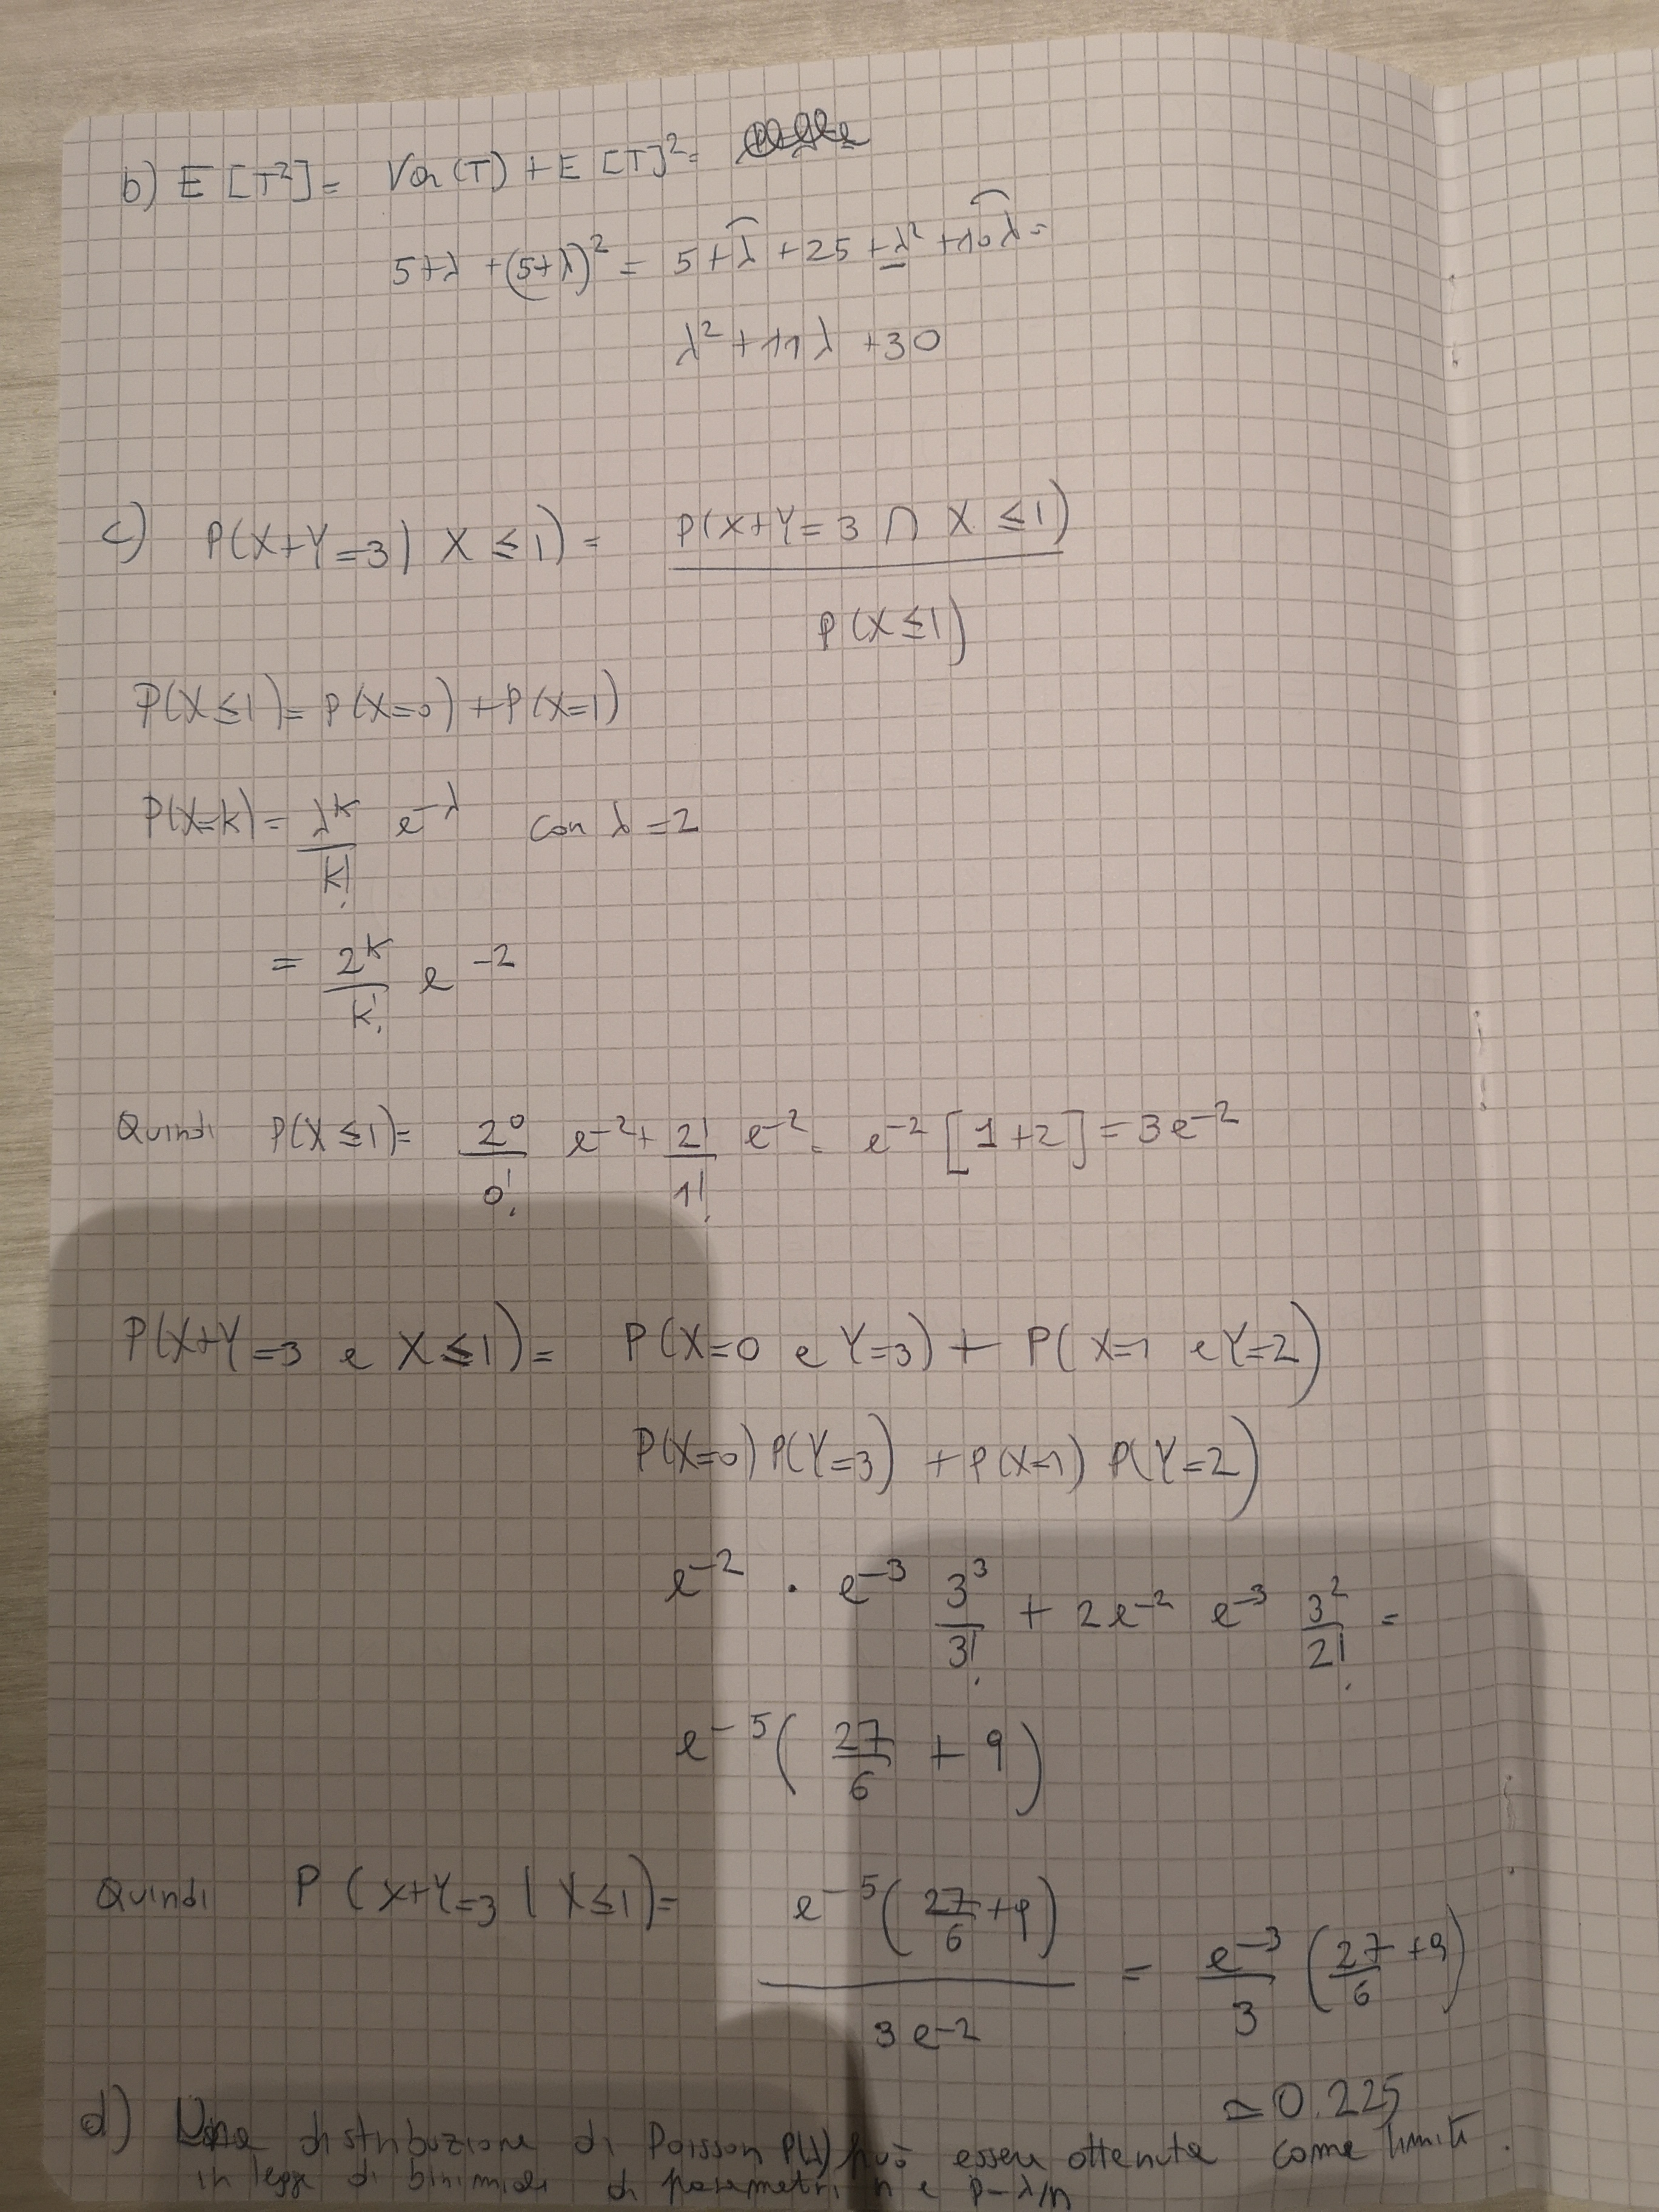 b) E[T²] = Var(T) + E[T]² =
5+λ +(5+λ)² = 5+λ+25+λ²+10λ =
λ²+11λ+30
c) P(X+Y=3| X≤1) = P(X+Y=3 ∩ X≤1)
P(X≤1)
P(X≤1) = P(X=0) + P(X=1)
P(X=k) = λᴷ/K! e^-λ con λ=2
= 2ᴷ/K! e^-2
Quindi P(X≤1) = 2⁰/0! e^-2 + 2¹/1! e^-2 = e^-2 [1+2] = 3e^-2
P(X+Y=3 e X≤1) = P(X=0 e Y=3) + P(X=1 e Y=2)
P(X=0)P(Y=3) + P(X=1) P(Y=2)
e^-2 · e^-3 3³/3! + 2e^-2 e^-3 3²/2! =
e^-5 (27/6 + 9)
Quindi P(X+Y=3 | X≤1) = e^-5 (27/6+9) / 3e^-2 = e^-3/3 (27/6+9)
≃ 0.225
d) Una distribuzione di Poisson P(λ) può essere ottenuta come limite
in legge di binimiali di parametri n e p=λ/n